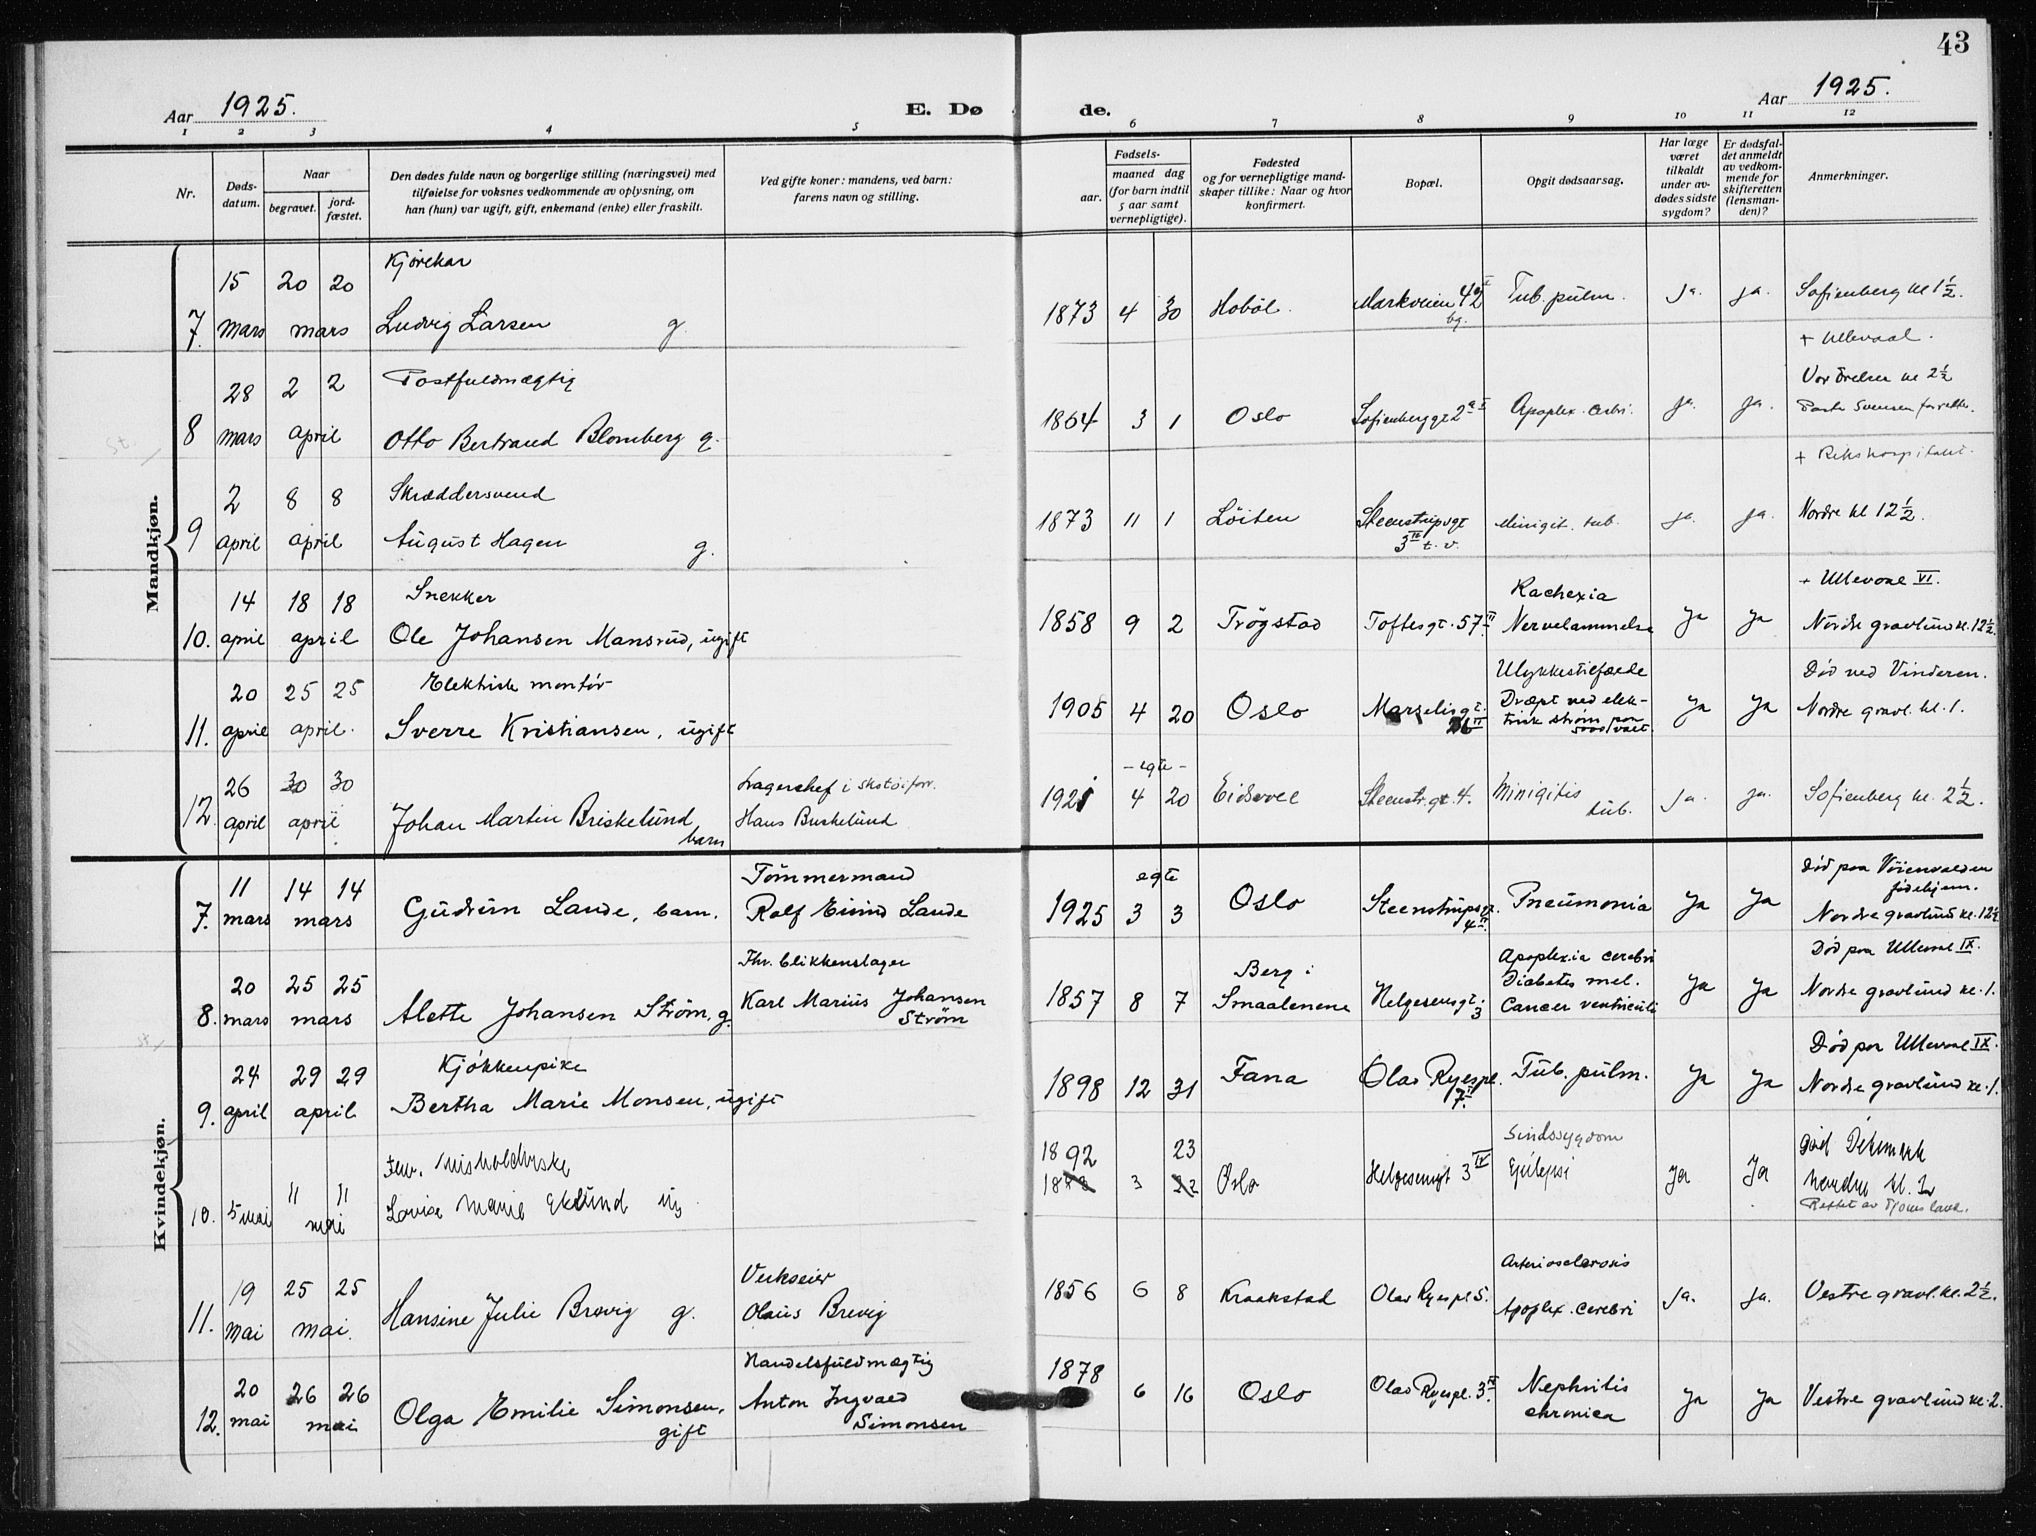 43
Aar 1925.
E. Døde.
Aar 1925.
1 2 3 4 5 6 7 8 9 10 11 12
Nr.
Døds-
datum.
Naar
begravet.
jord-
fæstet.
Den dødes fulde navn og borgerlige stilling (næringsvei) med
tilføielse for voksnes vedkommende av oplysning, om
han (hun) var ugift, gift, enkemand (enke) eller fraskilt.
Ved gifte koner: mandens, ved barn:
farens navn og stilling.
Fødsels-
aar.
maaned dag
(for barn indtil
5 aar samt
vernepligtige).
Fødested
og for vernepligtige mand-
skaper tillike: Naar og hvor
konfirmert.
Bopæl.
Opgit dødsaarsag.
Har læge
været
tilkaldt
under av-
dødes sidste
sygdom?
Er dødsfal-
det anmeldt
av vedkom-
mende for
skifteretten
(lensman-
den)?
Anmerkninger.
Mandkjøn.
Kjørekar
7. 15 mars 20 20 mars Ludvig Larsen g. 1873 4 30 Hobøl. Markveien 42 I bg. Tub. pulm. ja. ja. Sofienberg kl 1½.
+ Ullevaal.
Postfuldmægtig
8 28 mars 2 2 april Otto Bertrand Blomberg g. 1864 3 1 Oslo Sofienberggt 2 a I Apoplex. cerbri. ja. ja. Vor Frelser kl 2½
Pastor Svensen forrettet.
+ Rikshospitalet.
Skræddersvend
9 2 april 8 8 april August Hagen g. 1873 11 1 Løiten Steenstrupsgt 3 IV t. v. Minigit. tub. ja. ja. Nordre kl 12½.
Snekker
+ Ullevaal VI.
10. 14 april 18 18 april Ole Johansen Mansrud, ugift 1858 9 2 Trögstad Toftesgt. 57 II Kachexia
Nervelammelse Ja Ja Nordre gravlund kl. 12½.
Elektrisk montör
11. 20 april 25 25 april. Sverre Kristiansen, ugift 1905 4 20 Oslo Marselisgt. 26 II Ulykkestilfælde
Dræpt ved elek-
trisk ström paa
5000 volt. Ja Ja Död ved Vinderen.
Nordre gravl. kl. 1.
12. 26 april 30 30 april Johan Martin Briskelund
barn
Lagerchef i skotøiforr.
Hans Buskelund
- egte -
1921 4 20 Eidsvoll Steenstr.gt. 4. Minigitis
tub. ja. ja. Sofienberg kl. 2½.
Kvindekjøn.
7. 11 mars 14 14 mars Gudrun Lande, barn. Tömmermand
Rolf Eivind Lande
egte
1925 3 3 Oslo Steenstrupsgt. 4 II. Pneumonia Ja Ja Död paa Vöienvolden
födehjem.
Nordre gravlund kl. 12½
8. 20 mars 25 25 mars Alette Johansen Ström, g. Fhv. blikkenslager
Karl Marius Johansen
Ström
1857 8 7 Berg i
Smaalenene Helgesensgt. 3 Apoplexia cerebri
Diabetes mel.
Cancer ventriculi Ja Ja Död paa Ullevaal IX.
Nordre gravlund kl. 1.
Kjökkenpike
9. 24 april 29 29 april Bertha Marie Monsen, ugift 1898 12 31 Fana Olav Ryespl. 7 II. Tub. pulm. Ja Ja Död paa Ullevaal IX.
Nordre gravlund kl. 1.
10. 5 mai 11 11 mai Lovise Marie Eklund ug 1892 3 23 Oslo Helgesensgt 3 IV Sindssygdom
Epilepsi Ja Ja död Dikemark
nordre kl. 1
Rettet av
11. 19 mai 25 25 mai. Hansine Julie Brevig g. Verkseier
Olaus Brevig 1856 6 8 Kraakstad Olav Ryespl 5. Arteriosclerosis
Apoplex. cerebri ja. ja. Vestre gravl. kl. 2½.
12. 20 mai 26 26 mai Olga Emilie Simonsen,
gift Handelsfuldmægtig
Anton Ingvald
Simonsen
1878 6 16 Oslo Olav Ryespl. 3 IV. Nephritis
chronica Ja Ja Vestre gravlund kl. 2.